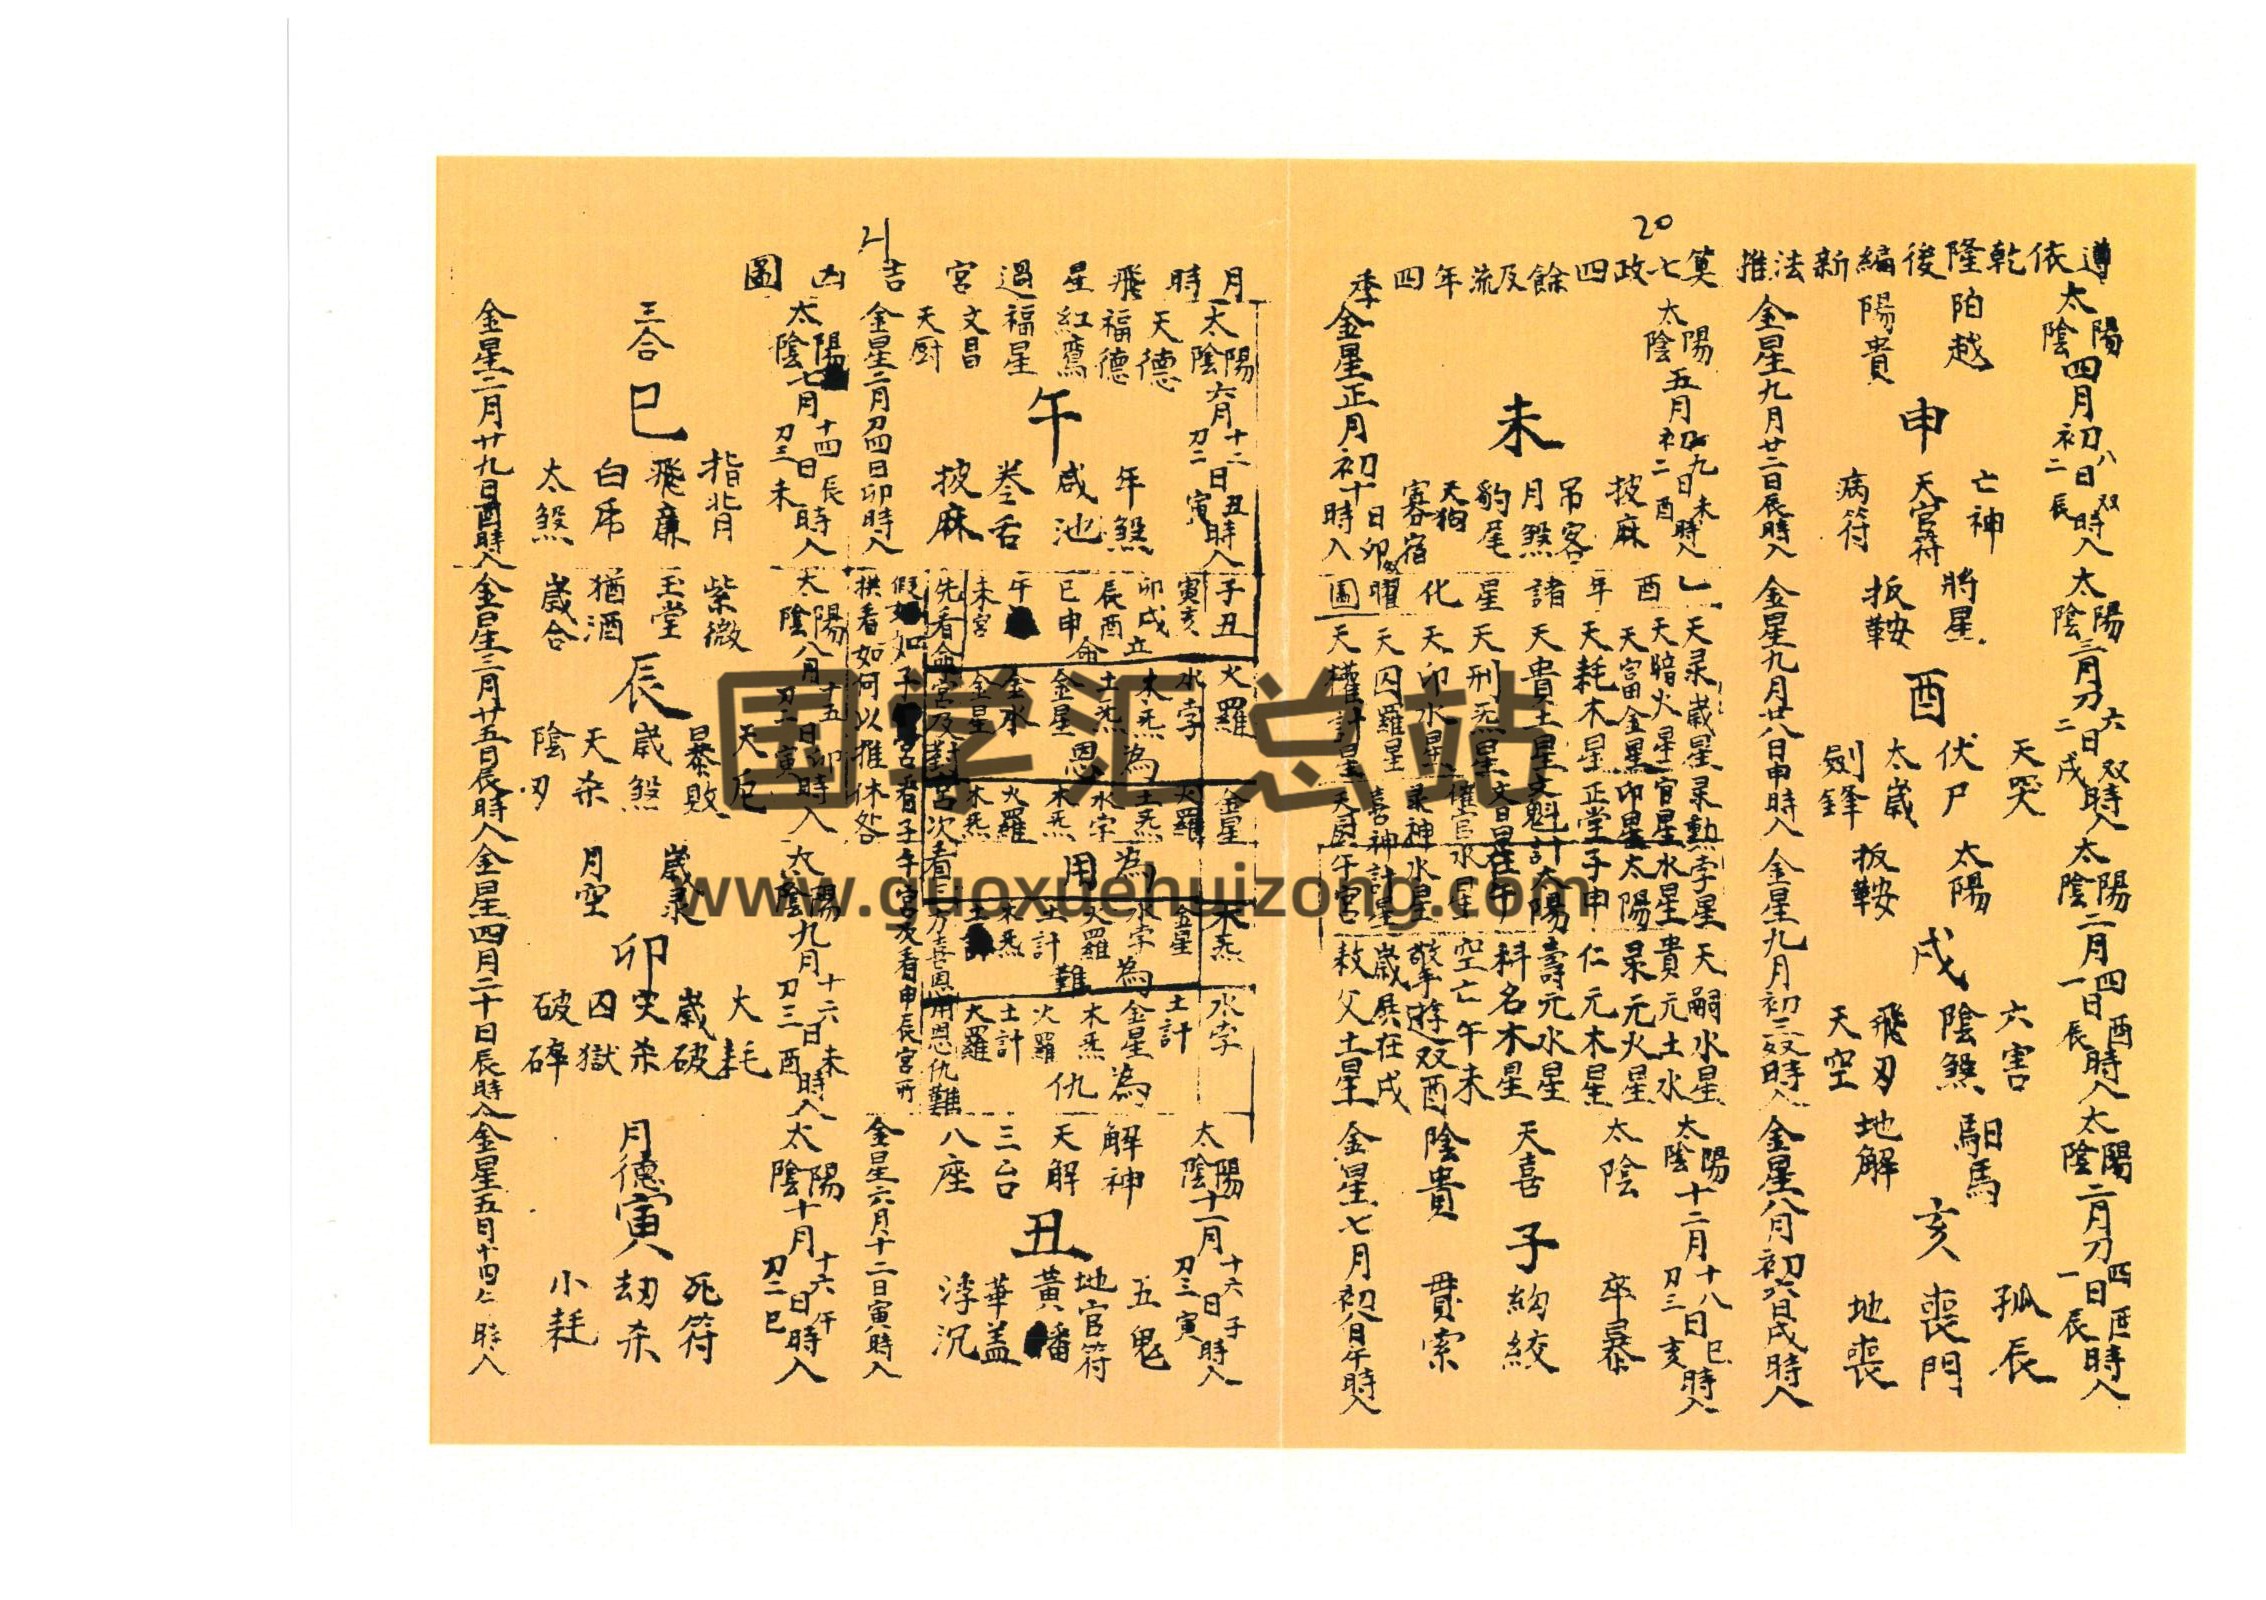 20
遵依乾隆後編新法推算七政四餘及流年四季
太陽四月初八日双時入
太陰二辰
陌越
陽貴
申
亡神
天官符
病符
金星九月廿二日辰時入
太陽三月刀六日双時入
太陰二戌
將星
扳鞍
酉
天哭
伏尸
太歲
劍鋒
金星九月廿八日申時入
太陽二月四日酉時入
太陰一辰
太陽
扳鞍
戌
六害
陰煞
飛刃
天空
金星九月初三日時入
太陽二月刀四日時入
太陰一辰
馹馬
地解
亥
孤辰
喪門
地喪
金星八月初六日戌時入
太陽五月初九日未時入
太陰二酉
未
披麻
吊客
月煞
豹尾
天狗
寡宿
金星正月初十日卯時入
乙酉年諸星化曜圖
天录歲星录勲孛星天嗣水星
天暗火星官星水星貴元土水
天富金星印星太陽录元火星
天耗木星正堂子申仁元木星
天貴土星文魁計太陽壽元水星
天刑炁星文昌在午科名木星
天印水星催官水星空亡午未
天囚羅星录神水星擎遊双酉
喜神計星歲殿在戌
天權計星天厨午宮赦父土星
太陽十二月十八日巳時入
太陰刀三亥
太陰
天喜
陰貴
子
卒暴
勾絞
貫索
金星七月初八日午時入
21
月時飛星過宮吉凶圖
太陽六月十二日丑時入
太陰刀二寅
天德
福德
紅鸞
福星
文昌
天厨
午
年煞
咸池
卷舌
披麻
金星二月刀四日卯時入
子丑 火羅 金星 木炁 水孛
寅亥 水孛 火羅 金星 土計
卯戌立 木炁為 土炁為 水孛為 金星為
辰酉命 土炁 水孛 火羅 木炁
巳申 金星恩 木炁用 土計難 火羅仇
午 金水 火羅 木炁 土計
未宮 金星 木炁 土計 火羅
先看命宮及對宮次看三方喜恩用恩仇難
假如子宮看子午宮及看申辰宮所
拱看如何以推休咎
太陽十一月十六日子時入
太陰刀三寅
解神
天解
三台
八座
丑
五鬼
地官符
黃旛
華盖
浮沉
金星六月十二日寅時入
太陽七月十四日辰時入
太陰刀三未
三合
巳
指背
飛廉
白虎
太煞
金星二月廿九日酉時入
太陽八月十五日卯時入
太陰刀二寅
紫微
玉堂
猶酒
歲合
辰
天厄
暴敗
歲煞
天杀
陰刃
金星三月廿五日辰時入
太陽九月十六日未時入
太陰刀三酉
歲录
月空
卯
大耗
歲破
灾杀
囚獄
破碎
金星四月二十日辰時入
太陽十月十六日午時入
太陰刀二巳
月德
寅
死符
劫杀
小耗
金星五月十四日時入
国学汇总站
www.guoxuehuizong.com